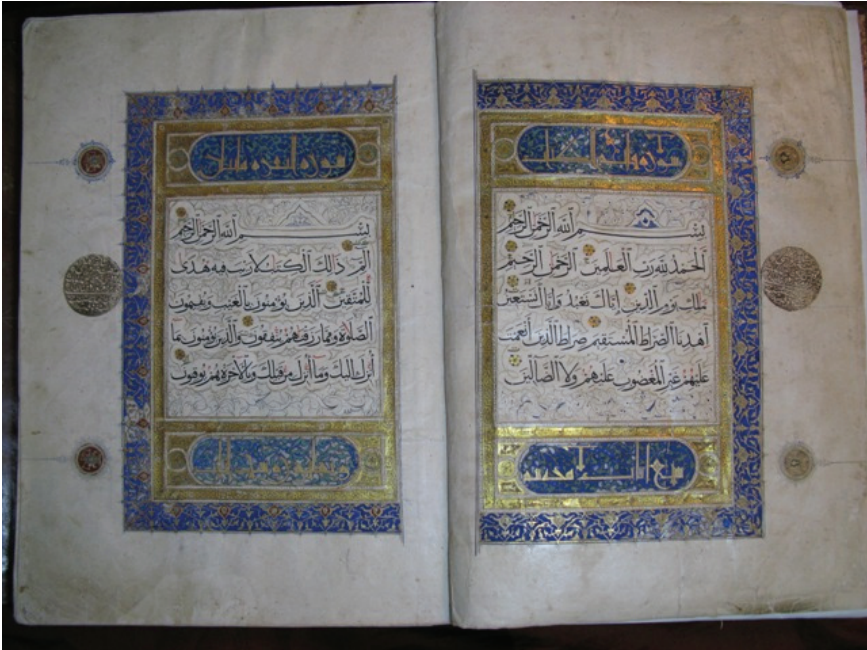 سورة فاتحة الكتاب
بِسْمِ ٱللَّهِ ٱلرَّحْمَٰنِ ٱلرَّحِيمِ
ٱلْحَمْدُ لِلَّهِ رَبِّ ٱلْعَالَمِينَ ٱلرَّحْمَٰنِ ٱلرَّحِيمِ
مَلِكِ يَوْمِ ٱلدِّينِ إِيَّاكَ نَعْبُدُ وَإِيَّاكَ نَسْتَعِينُ
ٱهْدِنَا ٱلصِّرَاطَ ٱلْمُسْتَقِيمَ صِرَاطَ ٱلَّذِينَ أَنْعَمْتَ
عَلَيْهِمْ غَيْرِ ٱلْمَغْضُوبِ عَلَيْهِمْ وَلَا ٱلضَّالِّينَ
سبع ايات
سورة البقرة
بِسْمِ ٱللَّهِ ٱلرَّحْمَٰنِ ٱلرَّحِيمِ
الٓمٓ ذَالِكَ ٱلْكِتَابُ لَا رَيْبَ فِيهِ هُدًى
لِلْمُتَّقِينَ ٱلَّذِينَ يُؤْمِنُونَ بِٱلْغَيْبِ وَيُقِيمُونَ
ٱلصَّلَوٰةَ وَمِمَّا رَزَقْنَٰهُمْ يُنْفِقُونَ وَٱلَّذِينَ يُؤْمِنُونَ بِمَا
أُنْزِلَ إِلَيْكَ وَمَا أُنْزِلَ مِنْ قَبْلِكَ وَبِٱلْآخِرَةِ هُمْ يُوقِنُونَ